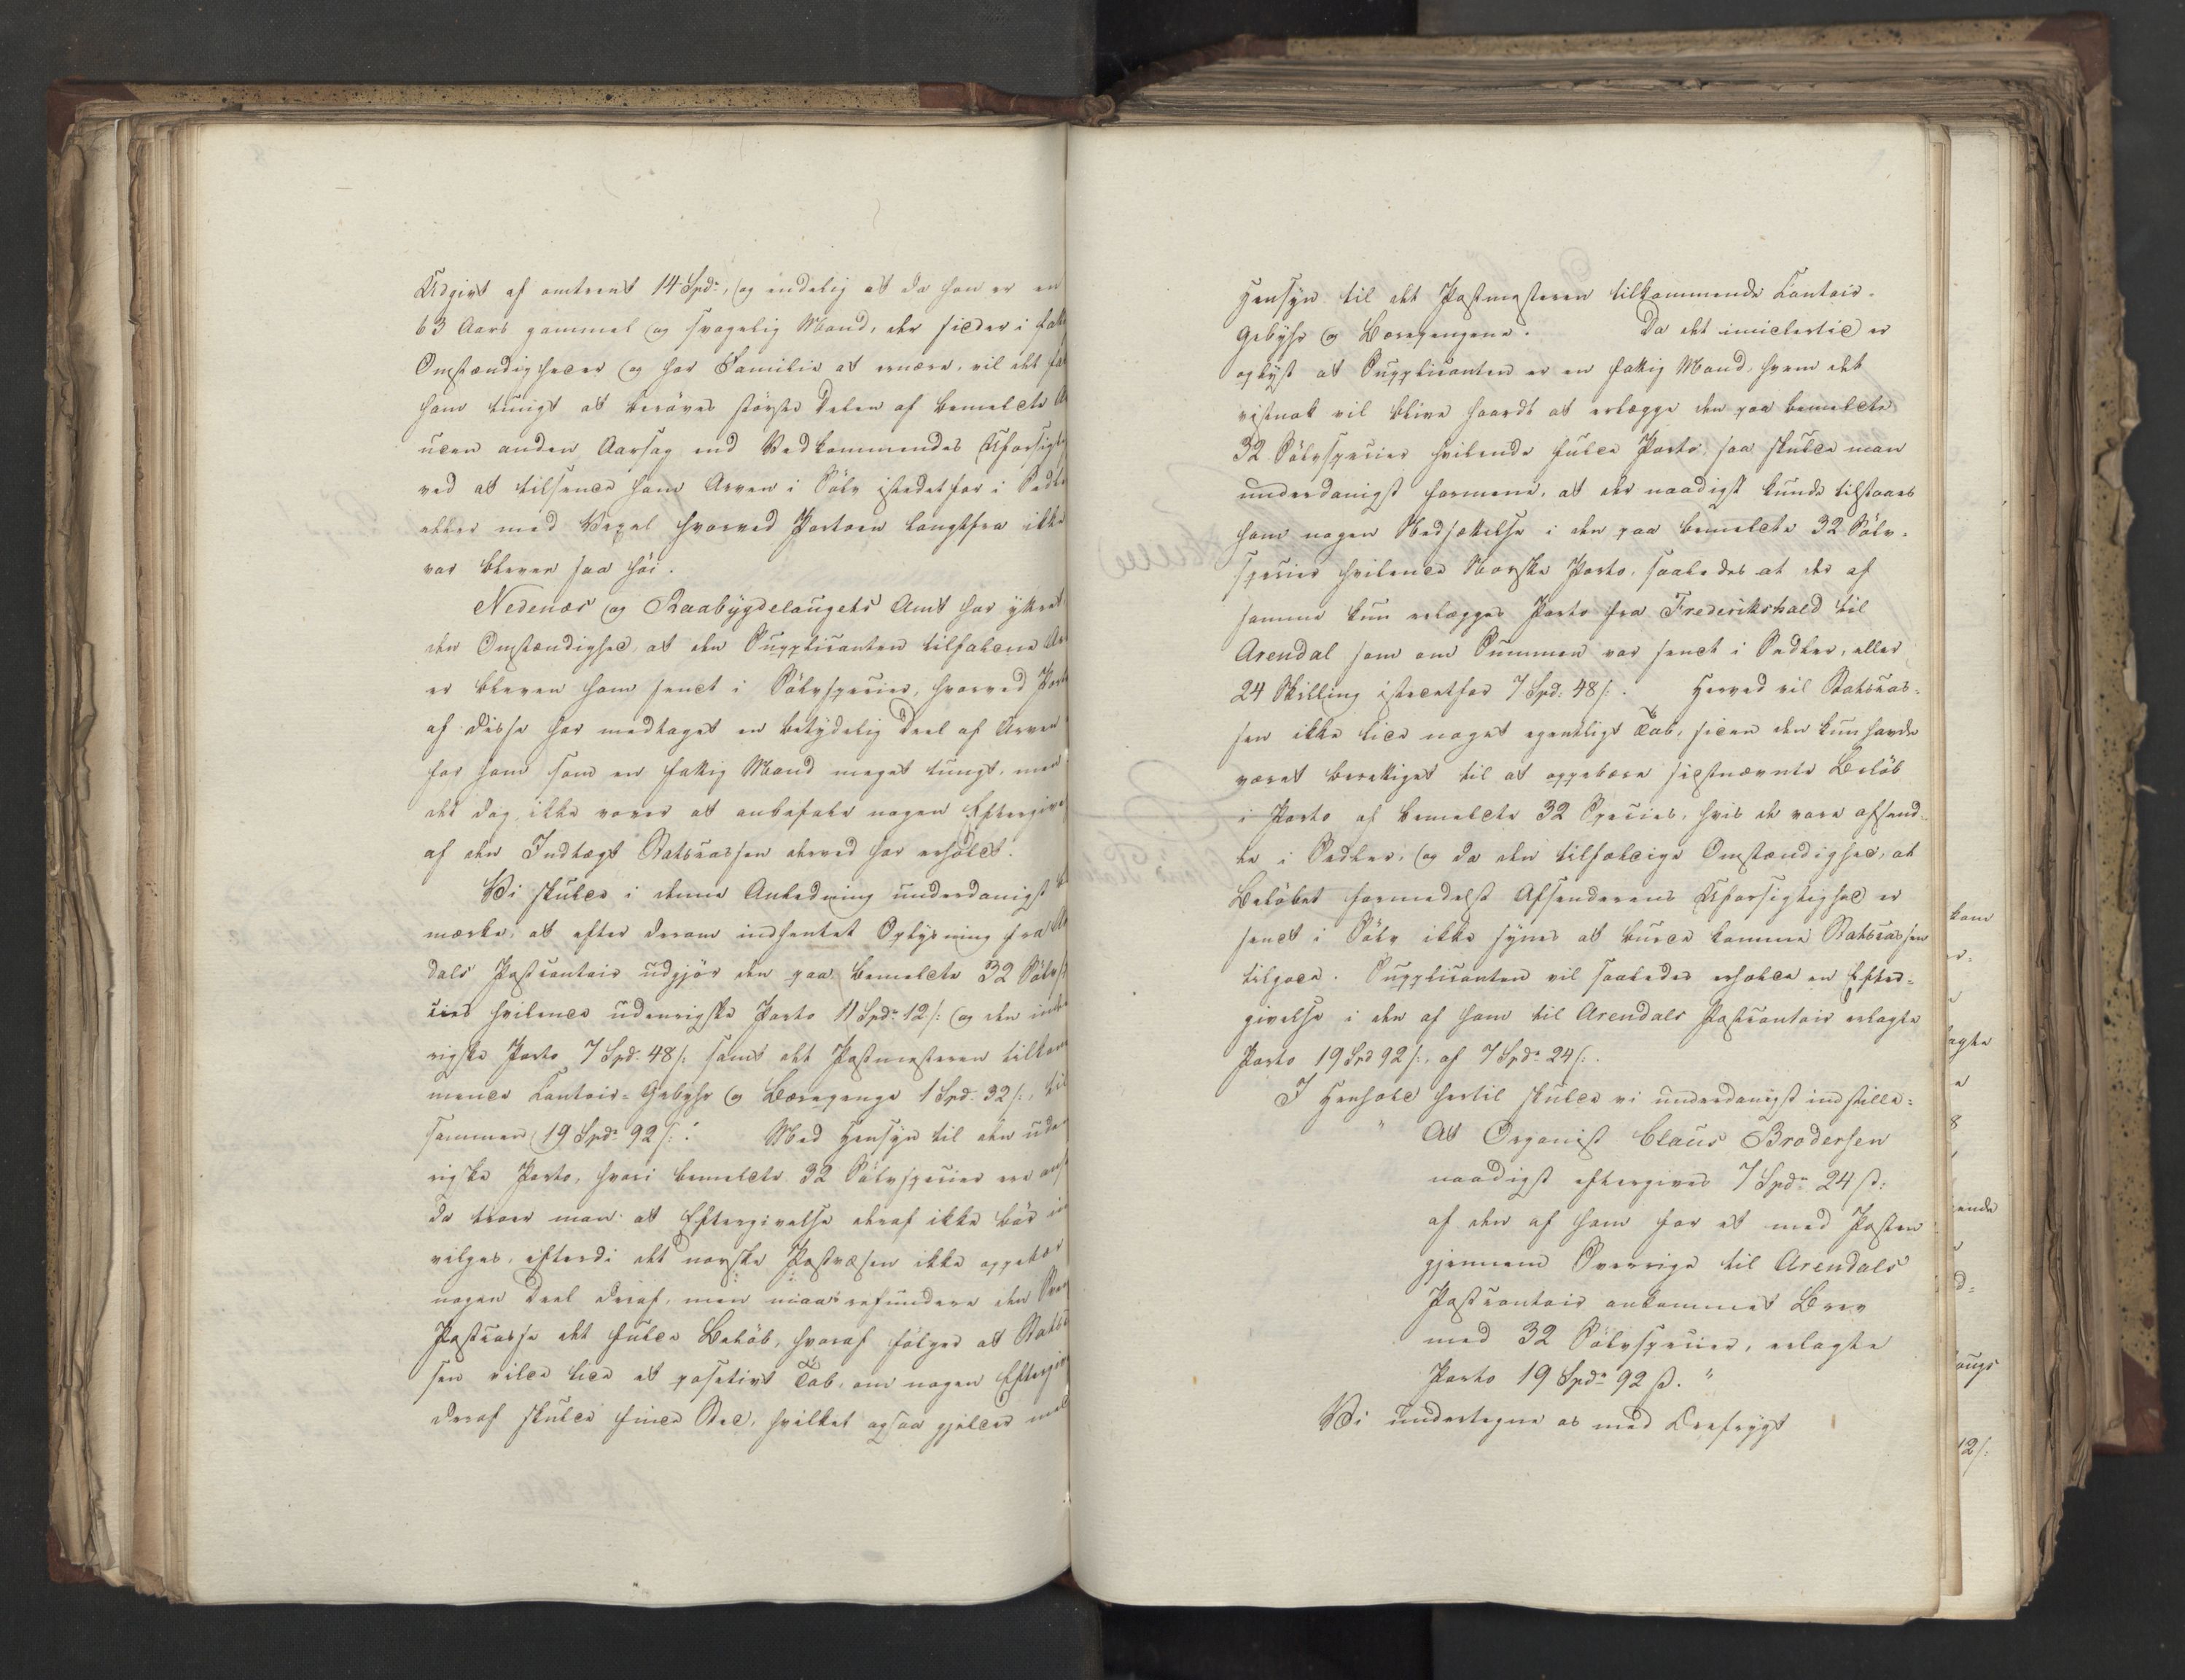 Udgivt af omtrent 14 Spd:, og endelig at da han er en
63 Aars gammel og svagelig Mand, der sidder i
Omstændigheder og har Familie at ernære, vil det
ham tungt at berøves største Delen af bemeldte
uden anden Aarsag end Vedkommendes Uforsigt
ved at tilsende ham Arven i Sølv istedetfor i Sedl
eller med Vexel hvorved Portoen langtfra ikke
var bleven saa høi.
Nedenæs og Raabygdelaugets Amt har yttret
den Omstændighed, at den Supplicanten tilfaldene
er bleven ham sendt i Sølvspecier, hvorved Port
af disse har medtaget en betydelig Deel af Arven
for ham som en fattig Mand meget tungt, men
det dog ikke vover at anbefale nogen Eftergive
af den Indtægt Statscassen derved har erholdt.
Vi skulde i denne Anledning underdanigst
mærke, at efter derom indhentet Oplysning fra
dals Postcontoir udgjør den paa bemeldte 32 Sølvs
cies hvilende udenrigske Porto 11 Spd: 12 s: og den
rigske Porto 7 Spd: 48 s: samt det Postmesteren tilkom
mende Contoir-Gebyhr og Bærepenge 1 Spd: 32 s:, til
sammen 19 Spd: 92 s:. Med Hensyn til den uden
rigske Porto, hvori bemeldte 32 Sølvspecier ere
da troer man at Eftergivelse deraf ikke bør
vilges, efterdi det norske Postvæsen ikke oppebær
nogen Deel deraf, men maae refundere den
Postcasse det fulde Beløb, hvoraf følger at Statsc
sen vilde lide et positivt Tab, om nogen Eftergiv
deraf skulde finde Sted, hvilket ogsaa gjelder med
Hensyn til det Postmesteren tilkommende Contoir-
Gebyhr og Bærepengene. Da det imidlertid er
oplyst at Supplicanten er en fattig Mand, hvem det
vistnok vil blive haardt at erlægge den paa bemeldte
32 Sølvspecier hvilende fulde Porto, saa skulde man
underdanigst formene, at der naadigst kunde tilstaaes
ham nogen Nedsættelse i den paa bemeldte 32 Sølv-
specier hvilende Norske Porto, saaledes at der af
samme kun erlægges Porto fra Frederikshald til
Arendal som om Summen var sendt i Sedler, eller
24 Skilling istedetfor 7 Spd: 48 s:. Herved vil Statscas-
sen ikke lide noget egentligt Tab, siden den kun havde
været berettiget til at oppebære sidstnævnte Beløb
i Porto af bemeldte 32 Species, hvis de vare afsend-
te i Sedler, og da den tilfældige Omstændighed, at
Beløbet formedelst Afsenderens Uforsigtighed er
sendt i Sølv ikke synes at burde komme Statscassen
tilgode. Supplicanten vil saaledes erholde en Efter-
givelse i den af ham til Arendals Postcontoir erlagte
Porto 19 Spd 92 s:, af 7 Spd: 24 s:.
I Henhold hertil skulde vi underdanigst indstille:
" At Organist Claus Brodersen
naadigst eftergives 7 Spd: 24 ß:
af den af ham for et med Posten
gjennem Sverrige til Arendals
Postcontoir ankommet Brev
med 32 Sølvspecier, erlagte
Porto 19 Spd: 92 ß. "
Vi undertegne os med Ærefrygt
kom
agte
8
ende
ougs
12 s: